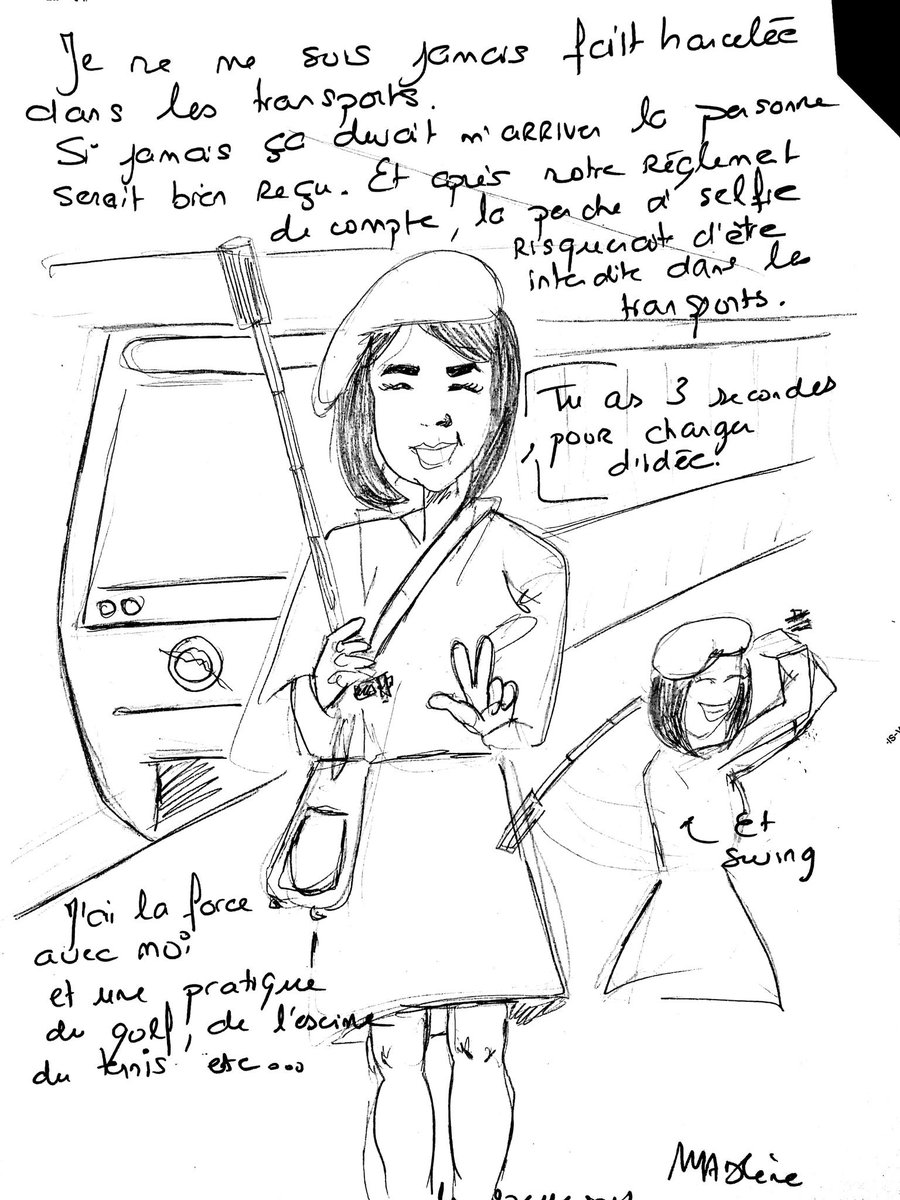 Je ne me suis jamais fait harcelée
dans les transports.
Si jamais ça devait m'ARRIVER la personne
serait bien Reçu. Et après notre Règlemet
de compte, la perche à selfie
Risquerait d'être
interdite dans les
transports.
Tu as 3 secondes
pour changer
d'idée.
Et
swing
J'ai la force
avec moi
et une pratique
du golf, de l'escrime
du tennis etc...
MARlène